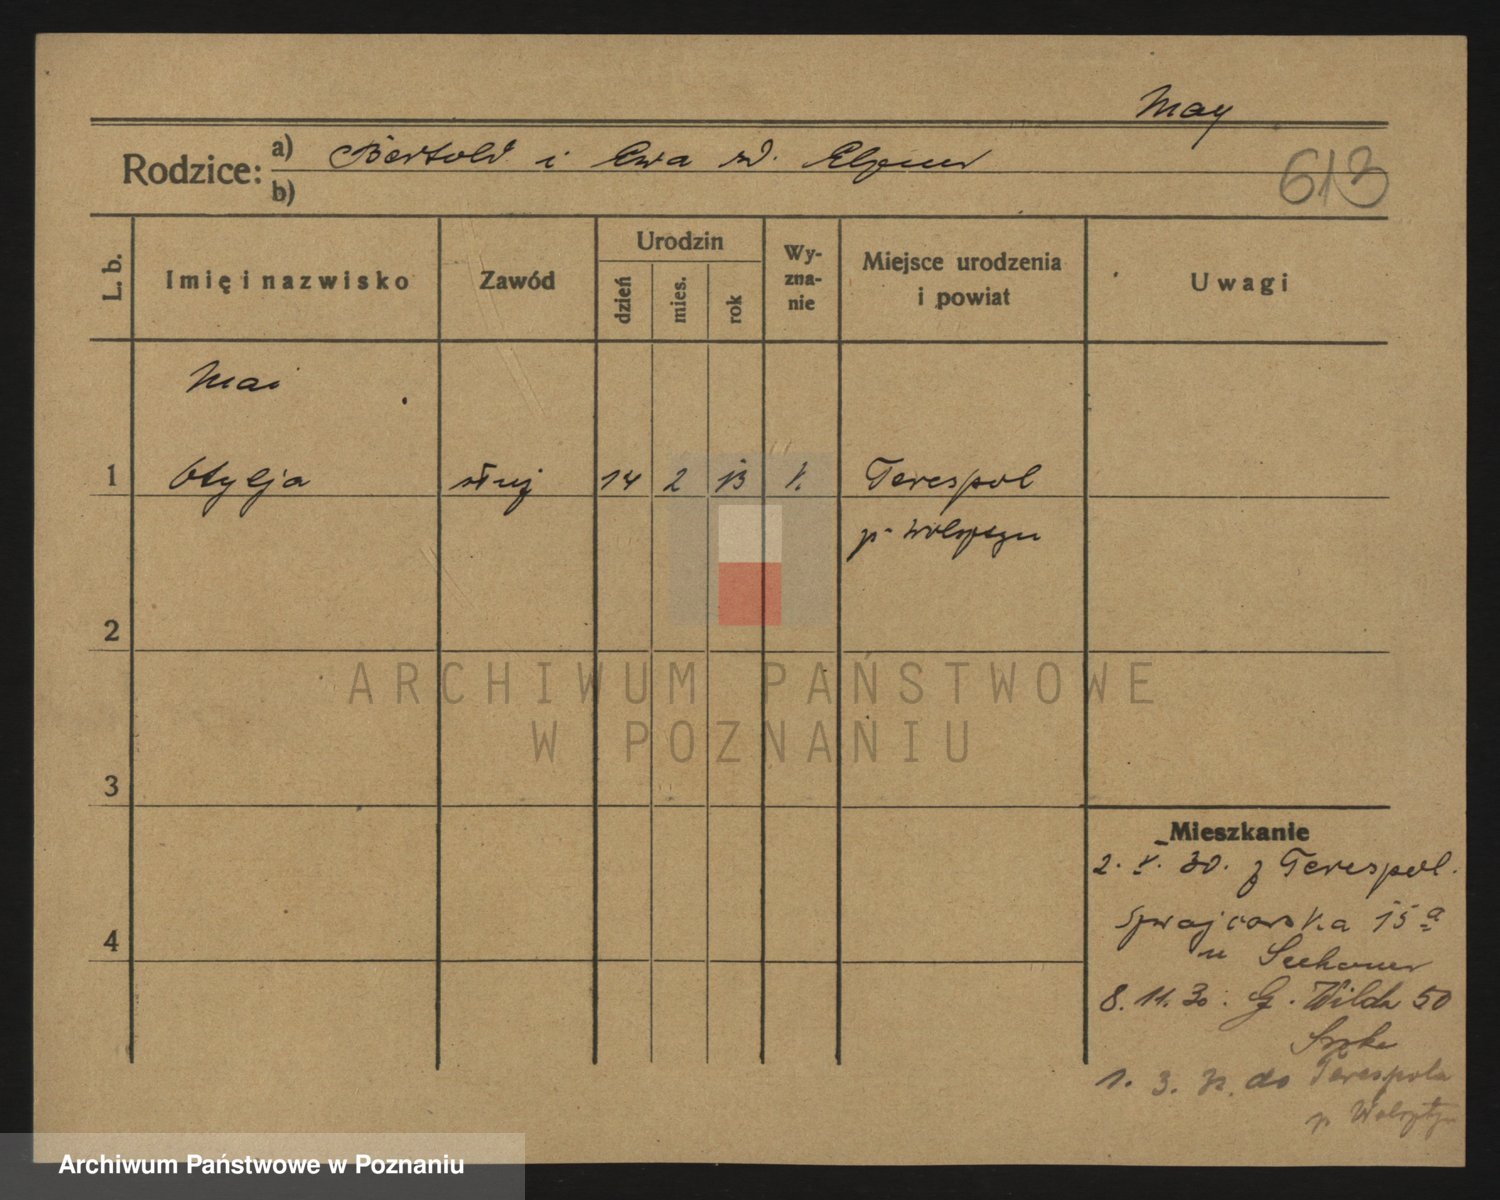 May
Rodzice: a) Bertold i Ewa zd.
b)
613
L. b.
Imię i nazwisko
Zawód
Urodzin
dzień
mies.
rok
Wy-
zna-
nie
Miejsce urodzenia
i powiat
Uwagi
Mai
1 Otylja służ 14 2 13 k. Terespol
p. Wolsztyn
2
3
4
Mieszkanie
2. V. 30. z Terespol.
Szwajcarska 15a
u
8. 11. 30. G. Wilda 50
1. 3. do Terespola
p Wolsztyn
ARCHIWUM PAŃSTWOWE
W POZNANIU
Archiwum Państwowe w Poznaniu